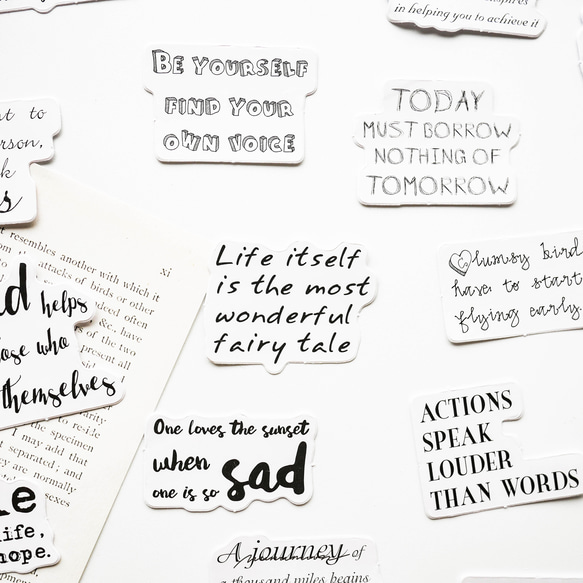 in helping you to achieve it
BE YOURSELF
FIND YOUR
OWN VOICE
TODAY
MUST BORROW
NOTHING OF
TOMORROW
to
k
s
resembles another with which it
xi
attacks of birds or other
often
&c., have
present all
Life itself
is the most
wonderful
fairy tale
lumsy bird
have to start
flying early.
helps
who
themselves
the specimen
I may add that
separated; and
are normally
sexes
One loves the sunset
when
one is so sad
ACTIONS
SPEAK
LOUDER
THAN WORDS
life,
hope.
A journey of
a thousand miles begins